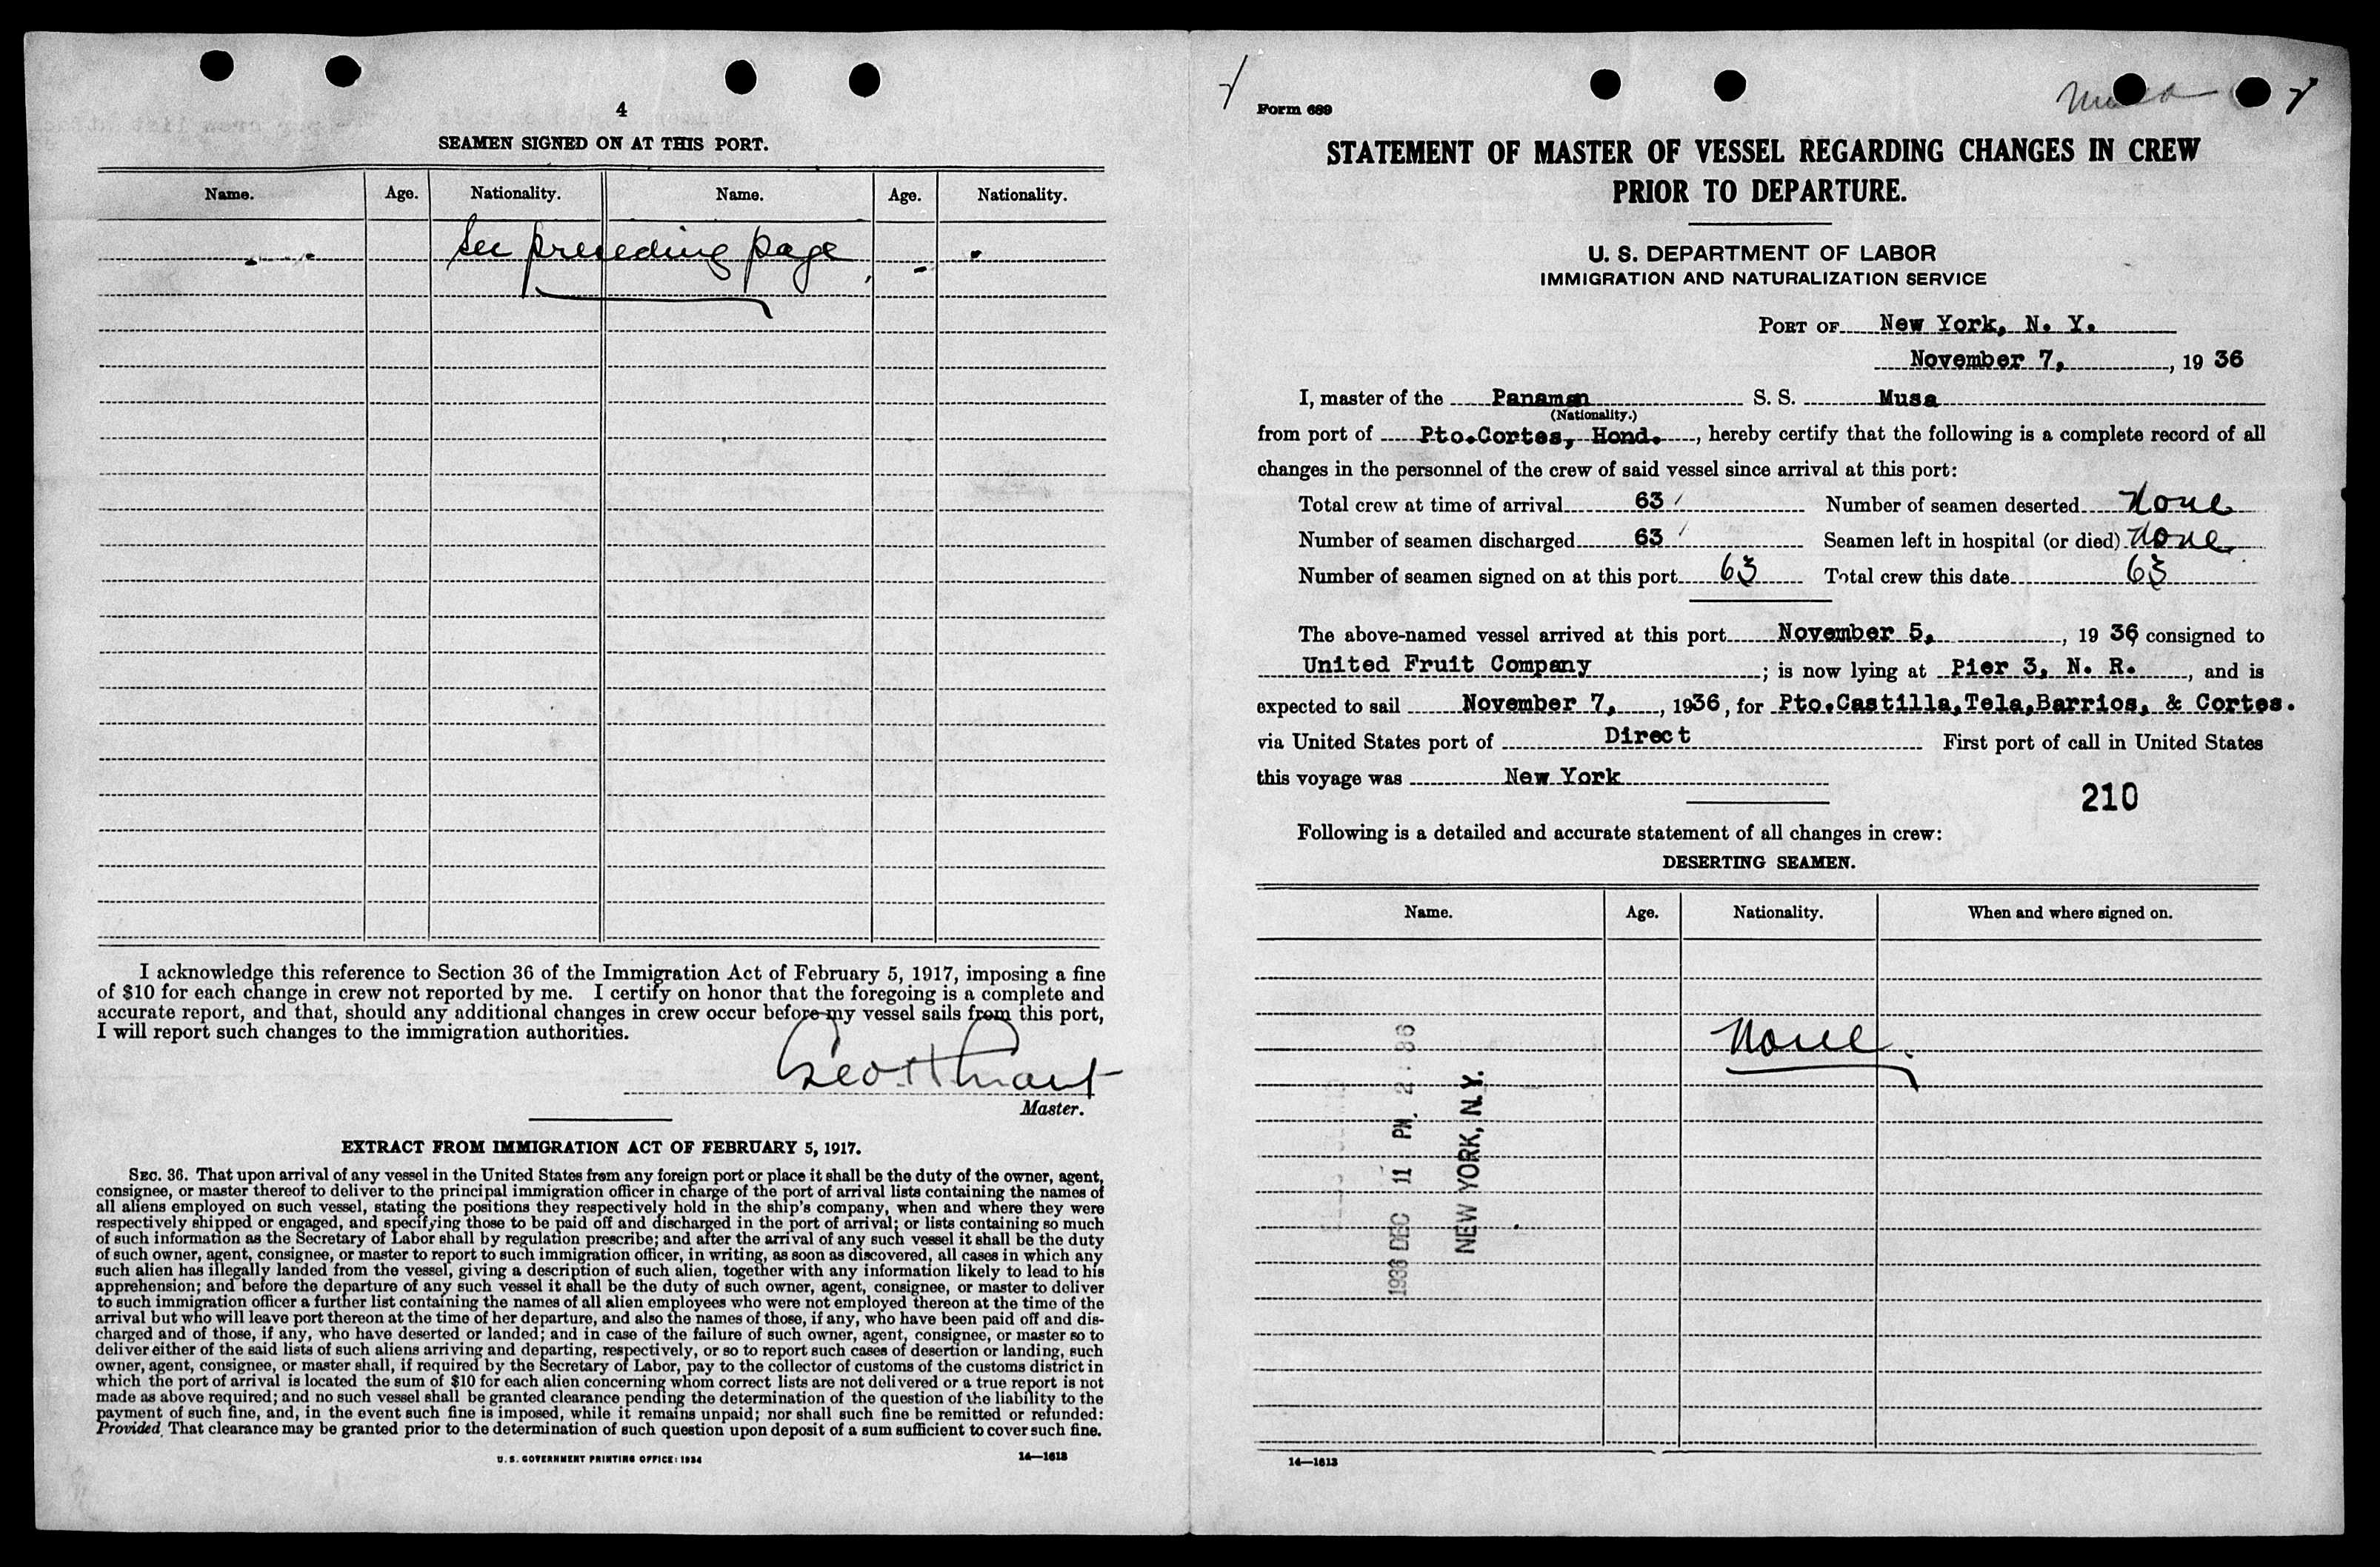 4
SEAMEN SIGNED ON AT THIS PORT.
Name. Age. Nationality. Name. Age. Nationality.
See preceding page
I acknowledge this reference to Section 36 of the Immigration Act of February 5, 1917, imposing a fine
of $10 for each change in crew not reported by me. I certify on honor that the foregoing is a complete and
accurate report, and that, should any additional changes in crew occur before my vessel sails from this port,
I will report such changes to the immigration authorities.
Master.
EXTRACT FROM IMMIGRATION ACT OF FEBRUARY 5, 1917.
SEC. 36. That upon arrival of any vessel in the United States from any foreign port or place it shall be the duty of the owner, agent,
consignee, or master thereof to deliver to the principal immigration officer in charge of the port of arrival lists containing the names of
all aliens employed on such vessel, stating the positions they respectively hold in the ship's company, when and where they were
respectively shipped or engaged, and specifying those to be paid off and discharged in the port of arrival; or lists containing so much
of such information as the Secretary of Labor shall by regulation prescribe; and after the arrival of any such vessel it shall be the duty
of such owner, agent, consignee, or master to report to such immigration officer, in writing, as soon as discovered, all cases in which any
such alien has illegally landed from the vessel, giving a description of such alien, together with any information likely to lead to his
apprehension; and before the departure of any such vessel it shall be the duty of such owner, agent, consignee, or master to deliver
to such immigration officer a further list containing the names of all alien employees who were not employed thereon at the time of the
arrival but who will leave port thereon at the time of her departure, and also the names of those, if any, who have been paid off and dis-
charged and of those, if any, who have deserted or landed; and in case of the failure of such owner, agent, consignee, or master so to
deliver either of the said lists of such aliens arriving and departing, respectively, or so to report such cases of desertion or landing, such
owner, agent, consignee, or master shall, if required by the Secretary of Labor, pay to the collector of customs of the customs district in
which the port of arrival is located the sum of $10 for each alien concerning whom correct lists are not delivered or a true report is not
made as above required; and no such vessel shall be granted clearance pending the determination of the question of the liability to the
payment of such fine, and, in the event such fine is imposed, while it remains unpaid; nor shall such fine be remitted or refunded:
Provided, That clearance may be granted prior to the determination of such question upon deposit of a sum sufficient to cover such fine.
U. S. GOVERNMENT PRINTING OFFICE: 1934 14—1613
Form 689
Musa
STATEMENT OF MASTER OF VESSEL REGARDING CHANGES IN CREW
PRIOR TO DEPARTURE.
U. S. DEPARTMENT OF LABOR
IMMIGRATION AND NATURALIZATION SERVICE
PORT OF New York, N. Y.
November 7, , 19 36
I, master of the Panaman S. S. Musa
(Nationality.)
from port of Pto.Cortes, Hond. , hereby certify that the following is a complete record of all
changes in the personnel of the crew of said vessel since arrival at this port:
Total crew at time of arrival 63 Number of seamen deserted None
Number of seamen discharged 63 Seamen left in hospital (or died) None
Number of seamen signed on at this port 63 Total crew this date 63
The above-named vessel arrived at this port November 5, , 19 36 consigned to
United Fruit Company ; is now lying at Pier 3, N. R. , and is
expected to sail November 7, , 1936, for Pto.Castilla,Tela,Barrios, & Cortes.
via United States port of Direct First port of call in United States
this voyage was New York
210
Following is a detailed and accurate statement of all changes in crew:
DESERTING SEAMEN.
Name. Age. Nationality. When and where signed on.
None.
1936 DEC 11 PM 2
NEW YORK, N.Y.
14—1613